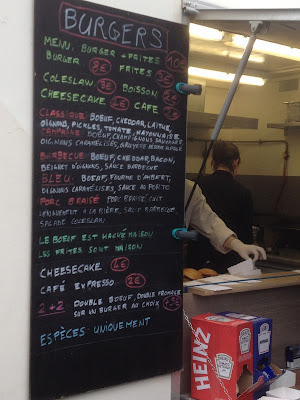 BURGERS
MENU: BURGER + FRITES 10€
BURGER 8€ FRITES 3€
COLESLAW 3€ BOISSON
CHEESECAKE 4€ CAFÉ
CLASSIQUE BOEUF, CHEDDAR, LAITUE,
OIGNONS, PICKLES, TOMATE, MAYONNAISE
CAMPAGNE BOEUF, CHAMPIGNONS SAUVAGES
OIGNONS CARAMELISÉS, GRUYÈRE
BARBECUE BOEUF, CHEDDAR, BACON,
BEIGNET D'OIGNONS, SAUCE BARBECUE
BLEU. BOEUF, FOURME D'AMBERT,
OIGNONS CARAMELISÉS, SAUCE AU PORTO
PORC BRAISÉ PORC BRAISÉ CUIT
LENTEMENT A LA BIÈRE, SAUCE BARBECUE
SALADE COLESLAW
LE BOEUF EST HACHÉ MAISON
LES FRITES SONT MAISON
CHEESECAKE 4€
CAFÉ EXPRESSO 2€
2+2 DOUBLE BOEUF, DOUBLE FROMAGE
SUR UN BURGER AU CHOIX +3€
ESPÈCES UNIQUEMENT
HEINZ
HEINZ